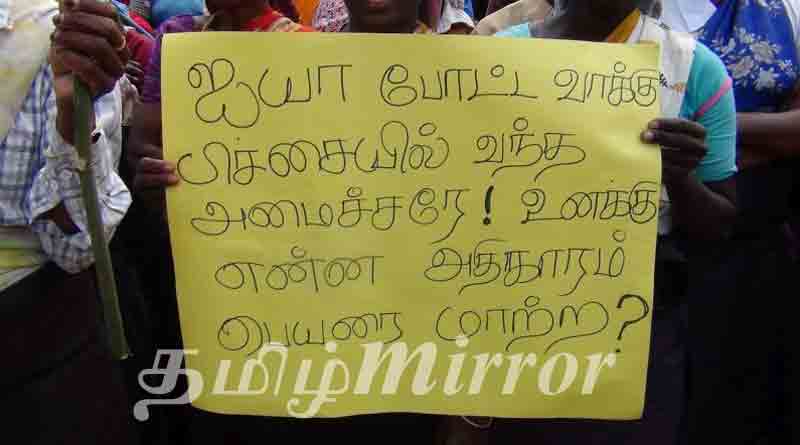 ஐயா போட்ட வாக்கு
பிச்சையில் வந்த
அமைச்சரே! உனக்கு
என்ன அதிகாரம்
பெயரை மாற்ற?
தமிழ்mirror